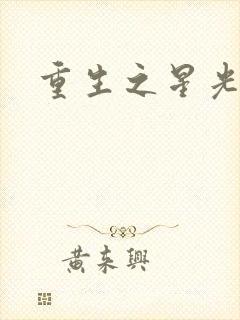 重生之星光
黄来興